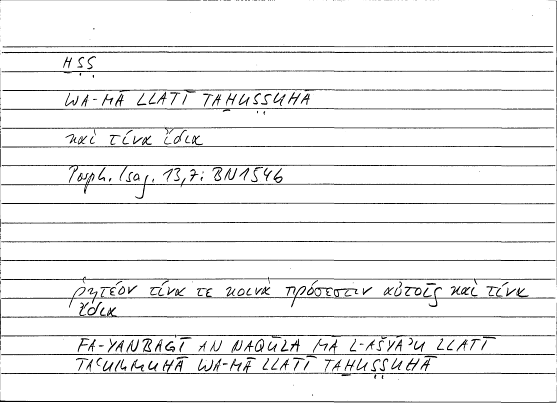 ḪṢṢ
WA-MĀ LLATĪ TAḪUṢṢUHĀ
καὶ τίνα ἴδια
Porph. Isag. 13,7: BN1546
ῥητέον τίνα τε κοινὰ πρόσεστιν αὐτοῖς καὶ τίνα
ἴδια
FA-YANBAĠĪ AN NAQŪLA MĀ L-AŠYĀʾU LLATĪ
TAʿUMMUHĀ WA-MĀ LLATĪ TAḪUṢṢUHĀ